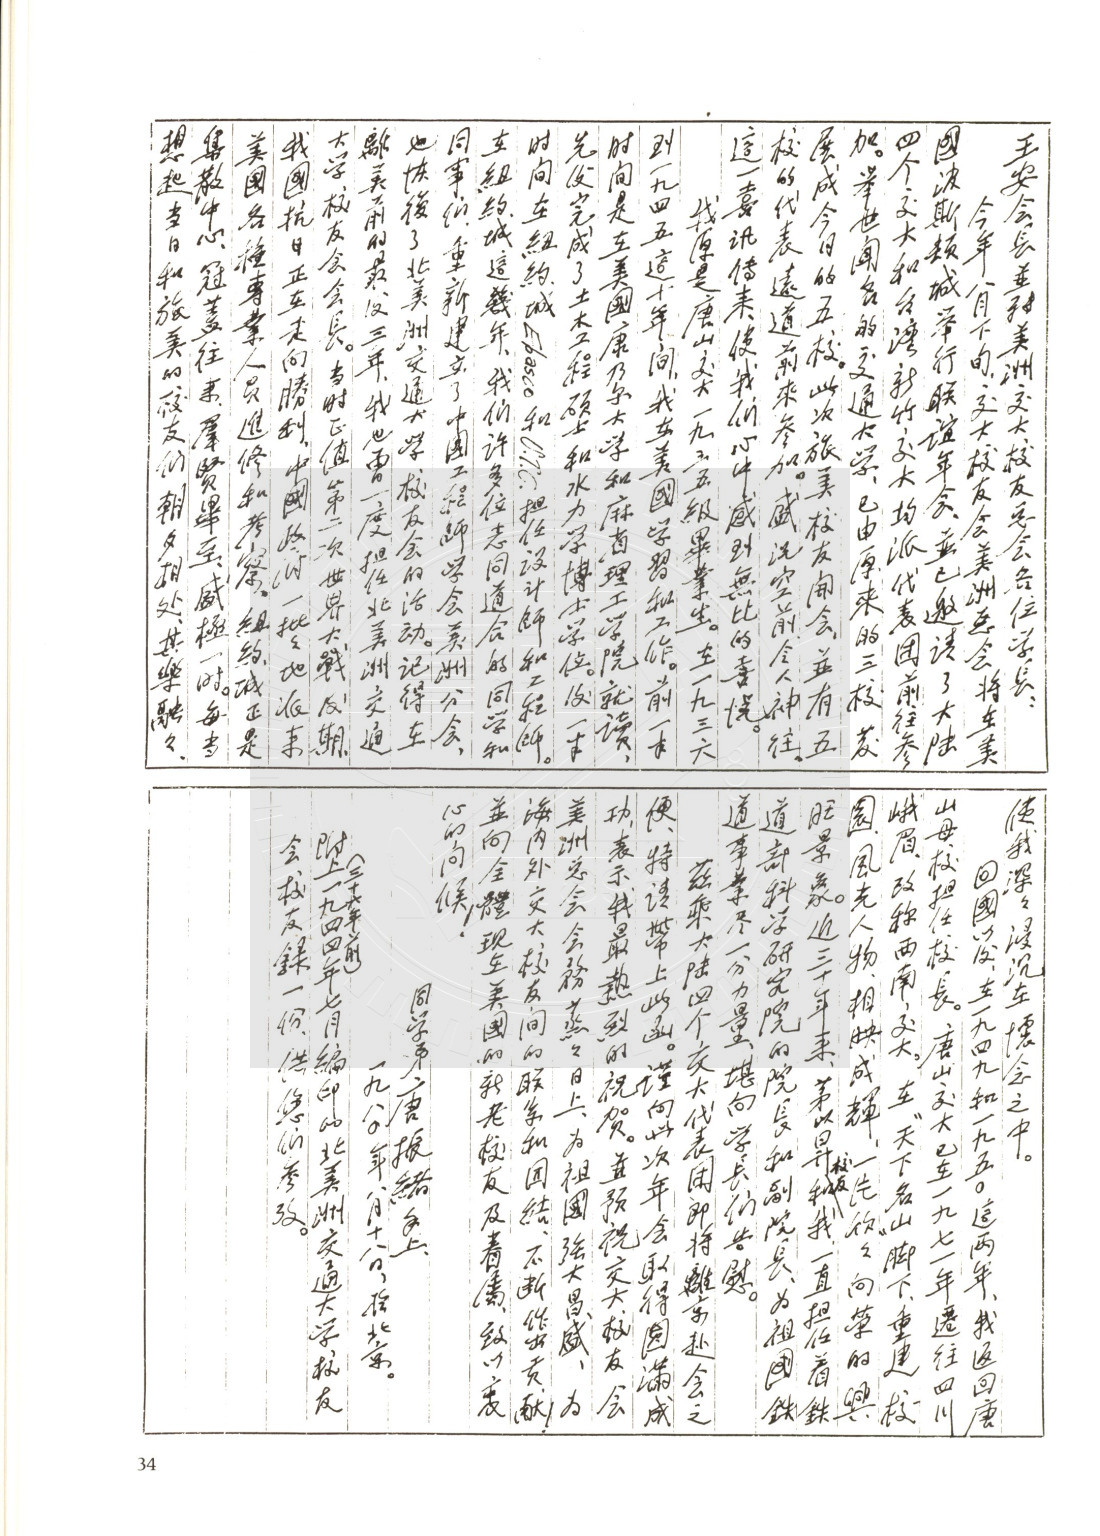 王安会長並轉美洲交大校友总会各位学長、
今年八月下旬,交大校友会美洲总会将在美
國波斯頓城举行联谊年会,並已邀请了大陆
四个交大和台灣新竹交大均派代表团前往参
加。举世闻名的交通大学,已由原来的三校发
展成今日的五校。此次旅美校友开会,並有五
校的代表遠道前来参加。盛况空前,令人神往。
這一喜訊传来,使我们心中感到無比的喜悦。
我原是唐山交大一九三五级畢業生。在一九三六
到一九四五這十年间,我在美國学習和工作。前一半
时间是在美國康乃尔大学和麻省理工学院就读,
先後完成了土木工程硕士和水力学博士学位。後一半
时间在纽约城Ebasco和U.T.C.担任设计师和工程師。
在纽约城這幾年,我们许多位志同道合的同学和
同事们,重新建立了中國工程師学会美洲分会,
也恢復了北美洲交通大学校友会的活动。記得在
離美前的最後三年,我也曾一度担任北美洲交通
大学校友会会長。当时正值第二次世界大戰後期,
我國抗日正在走向勝利,中國政府一批々地派来
美國各種專業人员進修和考察。纽约城正是
集散中心,冠蓋往来,羣賢畢至,盛極一时。每当
想起当日和旅美的校友们朝夕相处、其樂融々、
使我深々浸沉在懷念之中。
回國以後,在一九四九和一九五〇這两年,我返回唐
山母校担任校長。唐山交大已在一九七一年遷往四川
峨眉,改称西南交大。在“天下名山”脚下,重建校
園,風光人物,相映成輝,一片欣々向荣的興
旺景象。近三十年来,茅以昇校友和我,一直担任着鉄
道部科学研究院的院長和副院長,为祖國鉄
道事業尽一分力量,堪向学長们告慰。
茲乘大陆四个交大代表团即将離京赴会之
便,特请帶上此函。谨向此次年会取得圆满成
功,表示我最熱烈的祝贺。並预祝交大校友会
美洲总会会務蒸々日上,为祖國强大昌盛、为
海内外交大校友间的联系和团结,不断作出贡献!
並向全體现在美國的新老校友及眷属,致以衷
心的问候!
同学弟唐振緒手上、
一九八〇年八月十八日,於北京。
(三十六年前)
附上一九四四年七月编印的北美洲交通大学校友
会,校友錄一份,供您们参考。
34